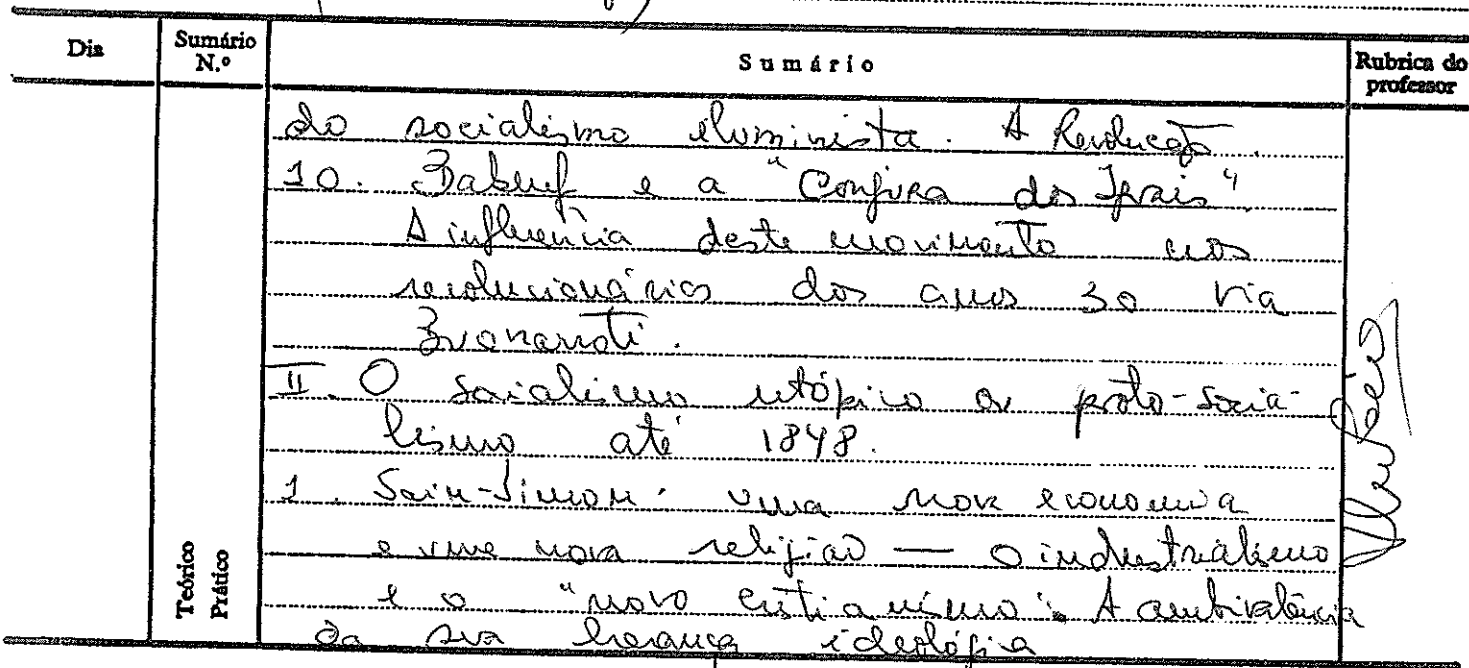 Dia
Sumário N.º
Sumário
Rubrica do professor
do socialismo iluminista. A Revolução.
10. Babeuf e a "Conjura dos Iguais"
A influência deste movimento nos
revolucionários dos anos 30 via
Buonarroti.
II. O socialismo utópico ou proto-socia-
lismo até 1848.
1. Sain-Simon: uma nova economia
e uma nova religião — o industrialismo
e o "novo cristianismo". A ambivalência
da sua herança ideológica
Teórico
Prático